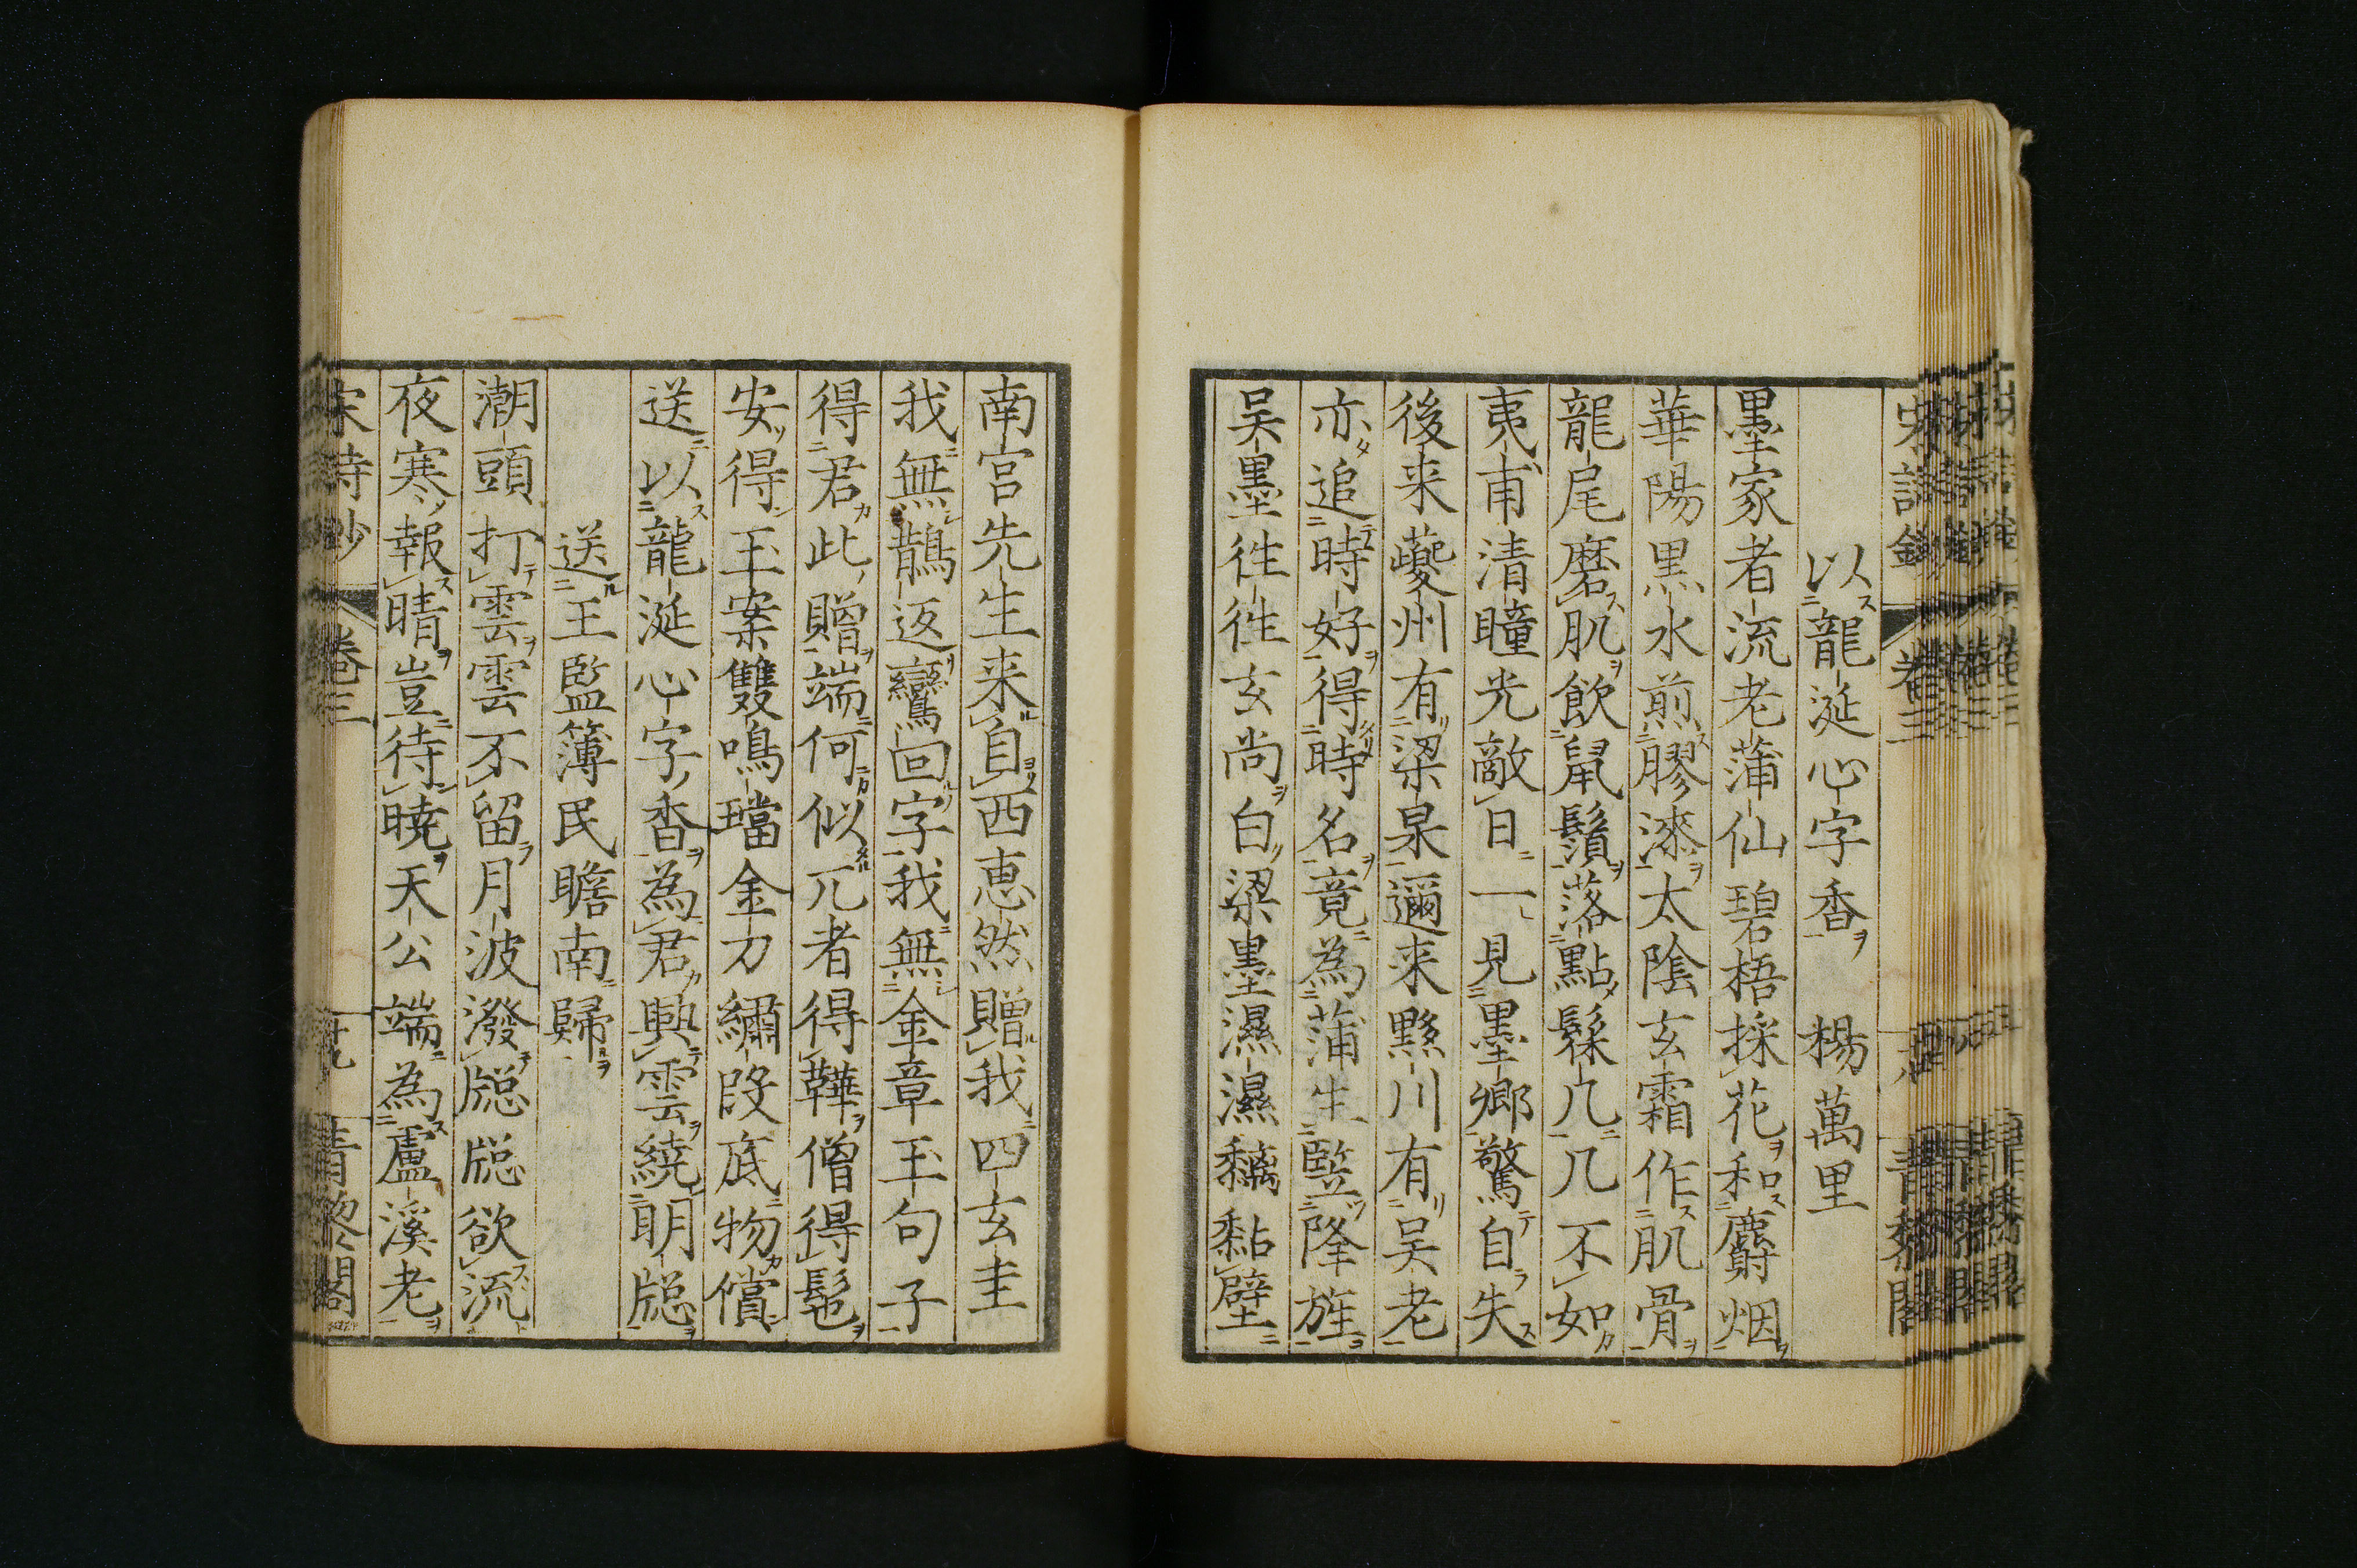 宋詩鈔 巻三 青黎閣
以龍涎心字香 楊萬里
墨家者流老蒲仙碧梧採花和麝烟
華陽黒水煎膠漆太陰玄霜作肌骨
龍尾磨肌飲鼠鬚落點髹几几不如
夷甫清瞳光敵日一見墨郷驚自失
後来夔州有梁杲邇来黟川有吴老
亦追時好得時名竟為蒲生竪降旌
吴墨徃徃玄尚白梁墨濕濕黐黏壁
南宮先生来自西恵然贈我四玄圭
我無鵲返鸞回字我無金章玉句子
得君此贈端何似兀者得鞾僧得髢
安得玉案雙鳴璫金刀繡段底物償
送以龍涎心字香為君興雲繞明牕
送王監簿民瞻南歸
潮頭打雲雲不留月波潑牕牕欲流
夜寒報晴豈待暁天公端為盧溪老
宋詩鈔 巻三 青黎閣